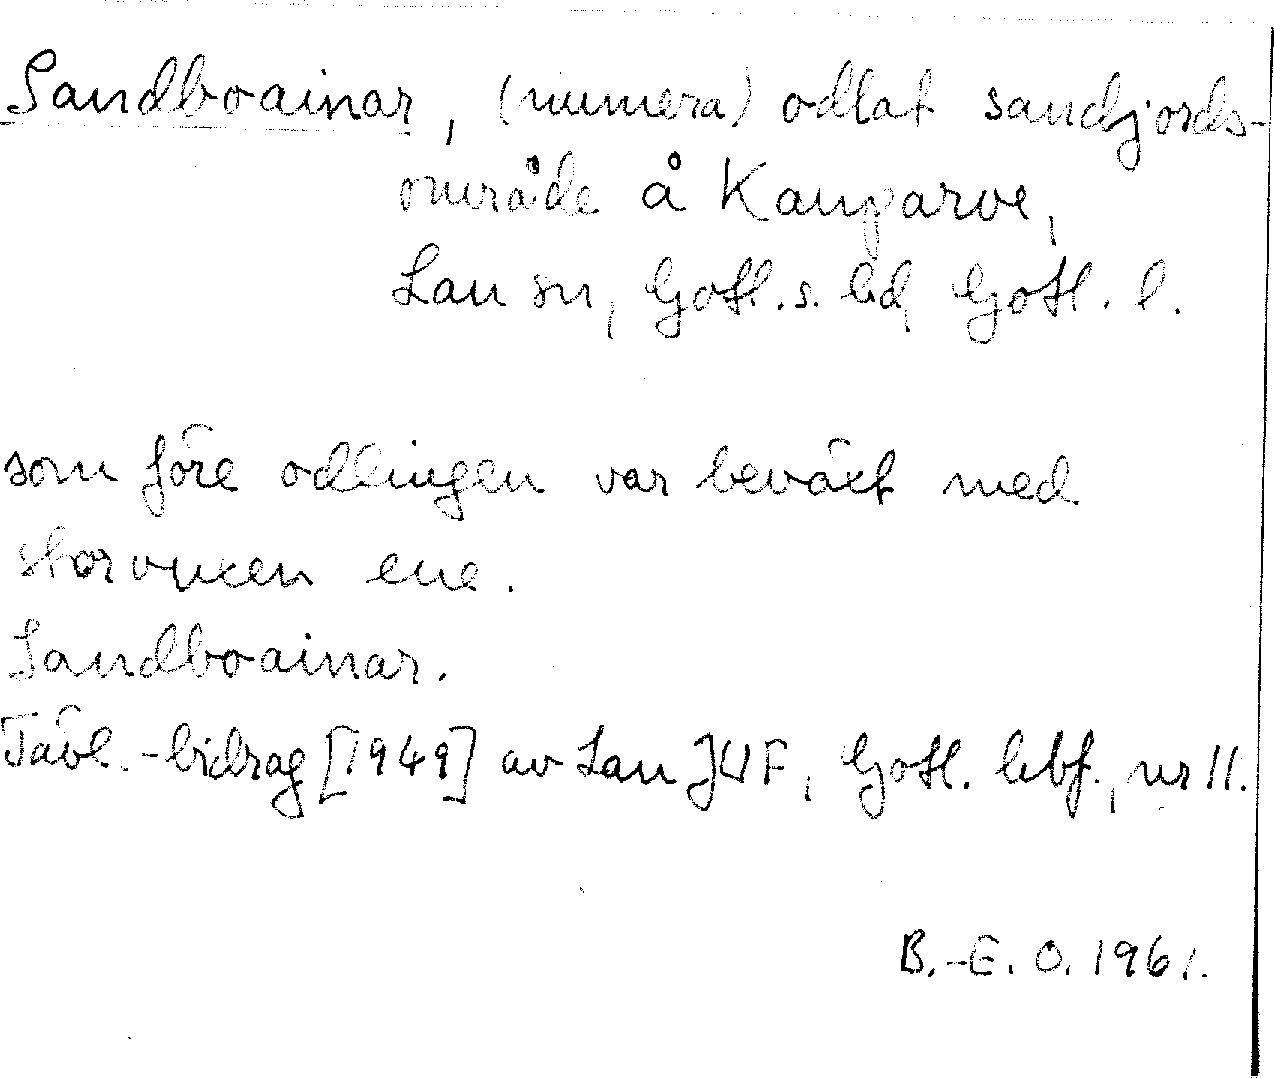 Sandboainar, (numera) odlat sandjords-
område å Kauparve,
Lau sn, Gotl. s. hd, Gotl. l.
som före odlingen var beväxt med
storvuxen ene.
Sandboainar.
Tävl.-bidrag [1949] av Lau JUF, Gotl. hbf., nr 11.
B.-E. O. 1961.